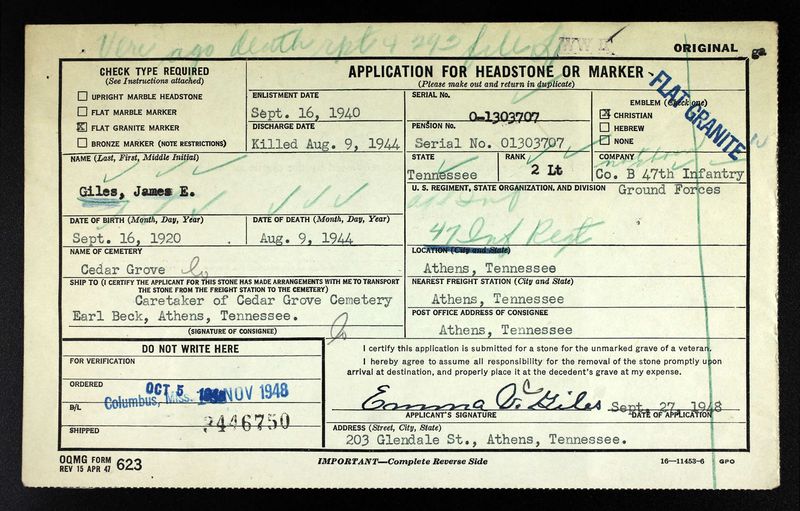 Very ago death rpt & 293 filed WW II
ORIGINAL
ga
CHECK TYPE REQUIRED
(See Instructions attached)
UPRIGHT MARBLE HEADSTONE
FLAT MARBLE MARKER
X FLAT GRANITE MARKER
BRONZE MARKER (NOTE RESTRICTIONS)
APPLICATION FOR HEADSTONE OR MARKER
(Please make out and return in duplicate)
FLAT GRANITE
ENLISTMENT DATE
Sept. 16, 1940
DISCHARGE DATE
Killed Aug. 9, 1944
SERIAL No.
O-1303707
PENSION No.
Serial No. 01303707
EMBLEM (Check one)
X CHRISTIAN
HEBREW
NONE
NAME (Last, First, Middle Initial)
Giles, James E.
STATE
Tennessee
RANK
2 Lt
COMPANY
Co. B 47th Infantry
U. S. REGIMENT, STATE ORGANIZATION, AND DIVISION
Ground Forces
47 Inf Regt
DATE OF BIRTH (Month, Day, Year)
Sept. 16, 1920
DATE OF DEATH (Month, Day, Year)
Aug. 9, 1944
NAME OF CEMETERY
Cedar Grove
LOCATION (City and State)
Athens, Tennessee
SHIP TO (I CERTIFY THE APPLICANT FOR THIS STONE HAS MADE ARRANGEMENTS WITH ME TO TRANSPORT
THE STONE FROM THE FREIGHT STATION TO THE CEMETERY)
Caretaker of Cedar Grove Cemetery
Earl Beck, Athens, Tennessee.
(SIGNATURE OF CONSIGNEE)
NEAREST FREIGHT STATION (City and State)
Athens, Tennessee
POST OFFICE ADDRESS OF CONSIGNEE
Athens, Tennessee
DO NOT WRITE HERE
FOR VERIFICATION
ORDERED
OCT 5 1948 NOV 1948
Columbus, Miss.
B/L
2446750
SHIPPED
I certify this application is submitted for a stone for the unmarked grave of a veteran.
I hereby agree to assume all responsibility for the removal of the stone promptly upon
arrival at destination, and properly place it at the decedent's grave at my expense.
Emma C. Giles Sept. 27, 1948
APPLICANT'S SIGNATURE DATE OF APPLICATION
ADDRESS (Street, City, State)
203 Glendale St., Athens, Tennessee.
OQMG FORM
REV 15 APR 47 623
IMPORTANT—Complete Reverse Side
16—11453-6 GPO